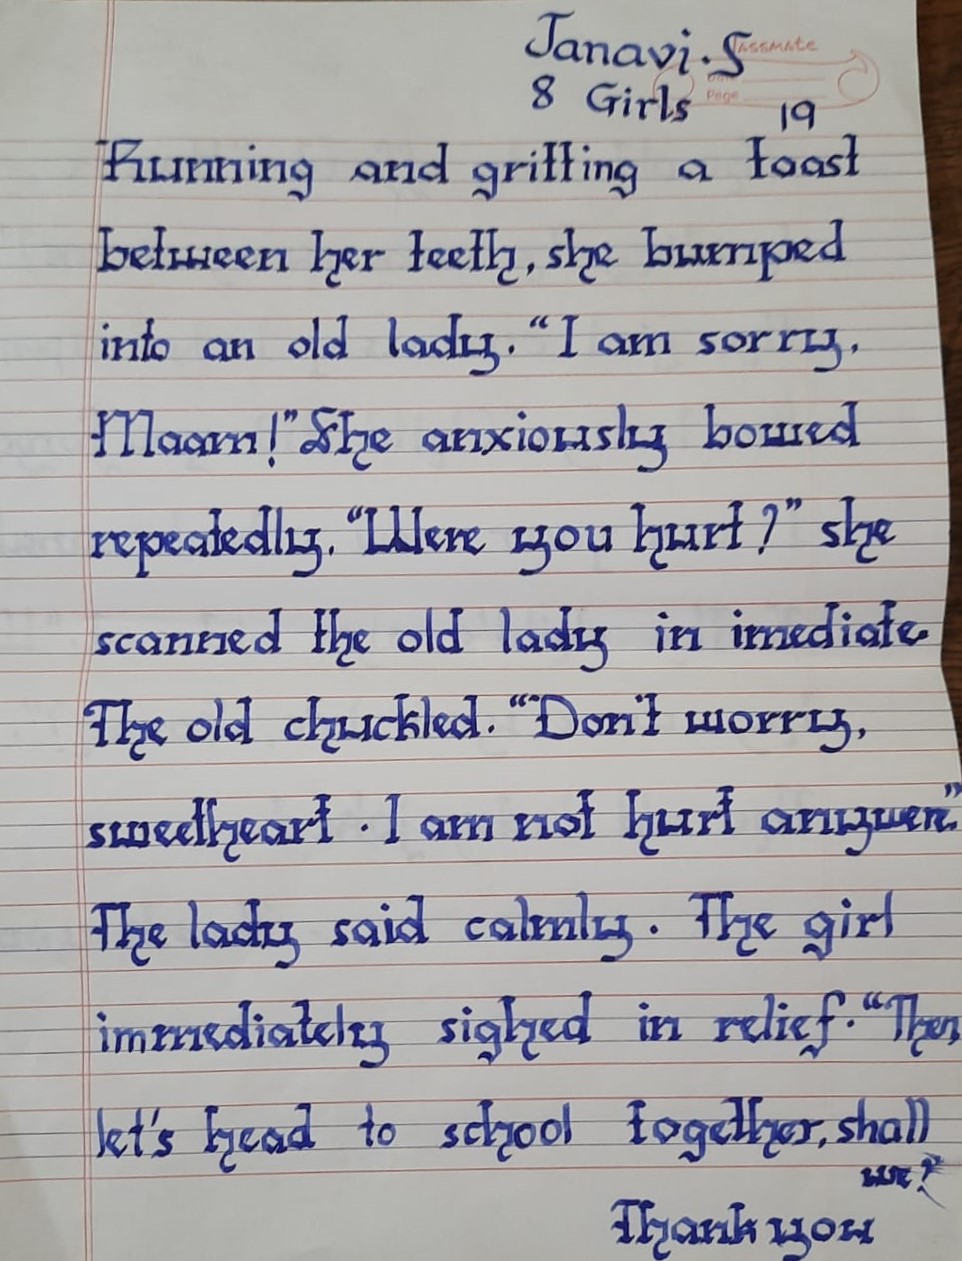 Janavi.S
classmate
Date
Page
8 Girls 19
Running and gritting a toast
between her teeth, she bumped
into an old lady. "I am sorry,
Maam!" She anxiously bowed
repeatedly. "Were you hurt?" she
scanned the old lady in imediate.
The old chuckled. "Don't worry,
sweetheart. I am not hurt anywen."
The lady said calmly. The girl
immediately sighed in relief. "Then,
let's head to school together, shall
we?"
Thank you